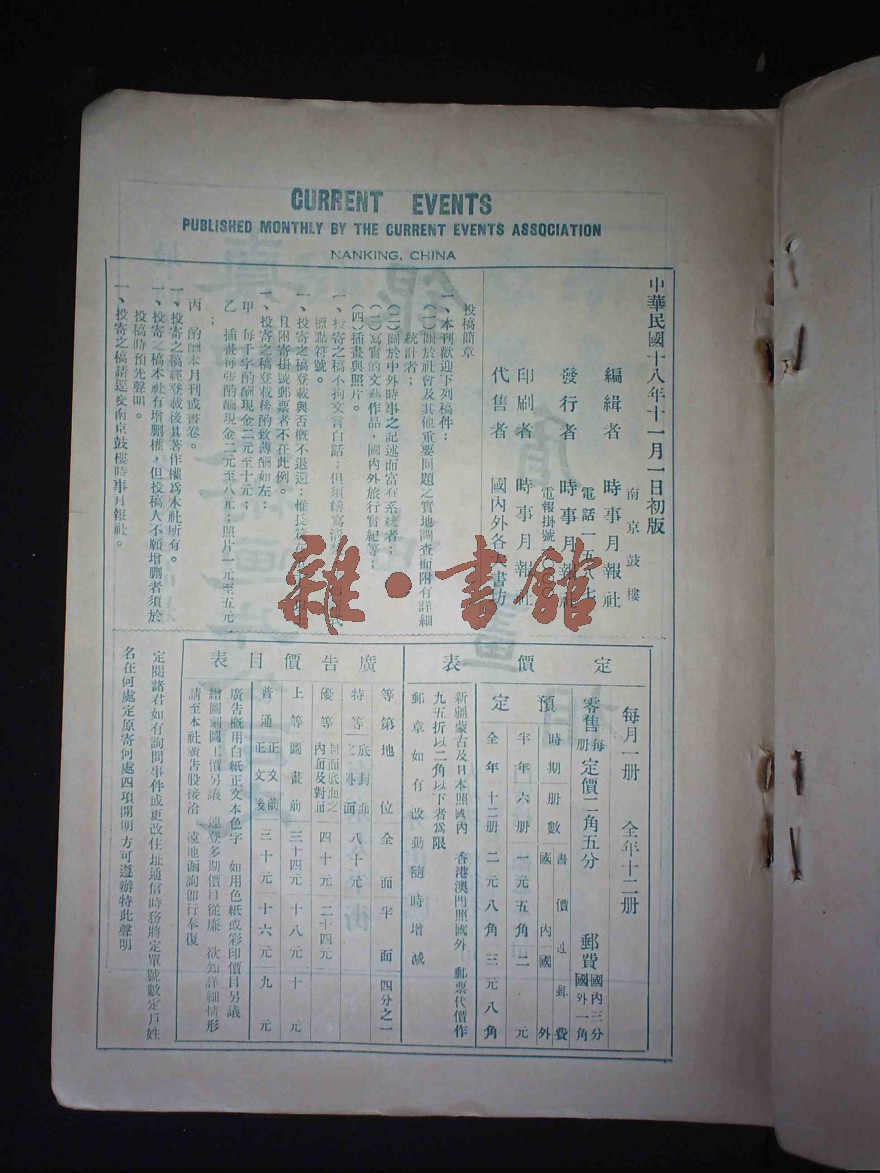 CURRENT EVENTS
PUBLISHED MONTHLY BY THE CURRENT EVENTS ASSOCIATION
NANKING, CHINA
中華民國十八年十一月一日初版
編緝者 時事月報社
南京鼓樓
發行者 時事月報社
電話一五八七
電報掛號
印刷者 時事月報社
代售者 國內外各大書坊
投稿簡章
一、本刊歡迎下列稿件：
(一)關於社會及其他重要問題之實地調查而附有詳細
統計者；
(二)關於中外時事之記述而富有系統者；
(三)寫實的文藝作品，國內外旅行實紀等；
(四)插畫與照片。
一、投寄之稿不拘文言白話；但須繕寫清
標點符號。
一、投寄之稿登載與否概不退還；惟長篇
且附寄掛號郵票者不在此例。
一、投寄之稿登載後酌致薄酬如左：
甲 每千字酌酬現金二元至十元；
乙 插畫每張酌酬現金二元至八元；照片一元至五元
；
丙 酌酬本月刊或書卷。
一、投寄之稿經登載後其著作權為本社所有。
一、投寄之稿本社有增删權，但投稿人不願增删者須於
投稿時預先聲明。
一、投寄之稿請逕交南京鼓樓時事月報社。
雜·書館
定價表
每月一册 全年十二册
零售 每册 定價二角五分 郵費 國內三分 國外一角
預定
時期 册數 書價連郵費 國內 國外
半年 六册 一元五角 二元
全年 十二册 二元八角 三元八角
新疆蒙古及日本照國內 香港澳門照國外 郵票代價作
九五折以二角以下者爲限
郵章如有改動隨時增減
廣告價目表
等第 地位 全面 半面 四分之一
特等 底封面之外面 八十元
優等 封面底面之內面及對面 四十元 二十四元
上等 圖畫前 三十四元 十八元 十元
普通 正文前 正文後 三十元 十六元 九元
廣告概用白紙正文本色字 如用色紙或彩印價目另議
繪圖刻圖工價另議 連登多期價目從廉 欲知詳細情形
請至本社廣告股接洽 遠地函詢卽行奉復
定閱諸君如有詢問事件或更改住址通信時務將定單號數定戶姓
名在何處定原寄何處四項開明方可遵辦特此聲明